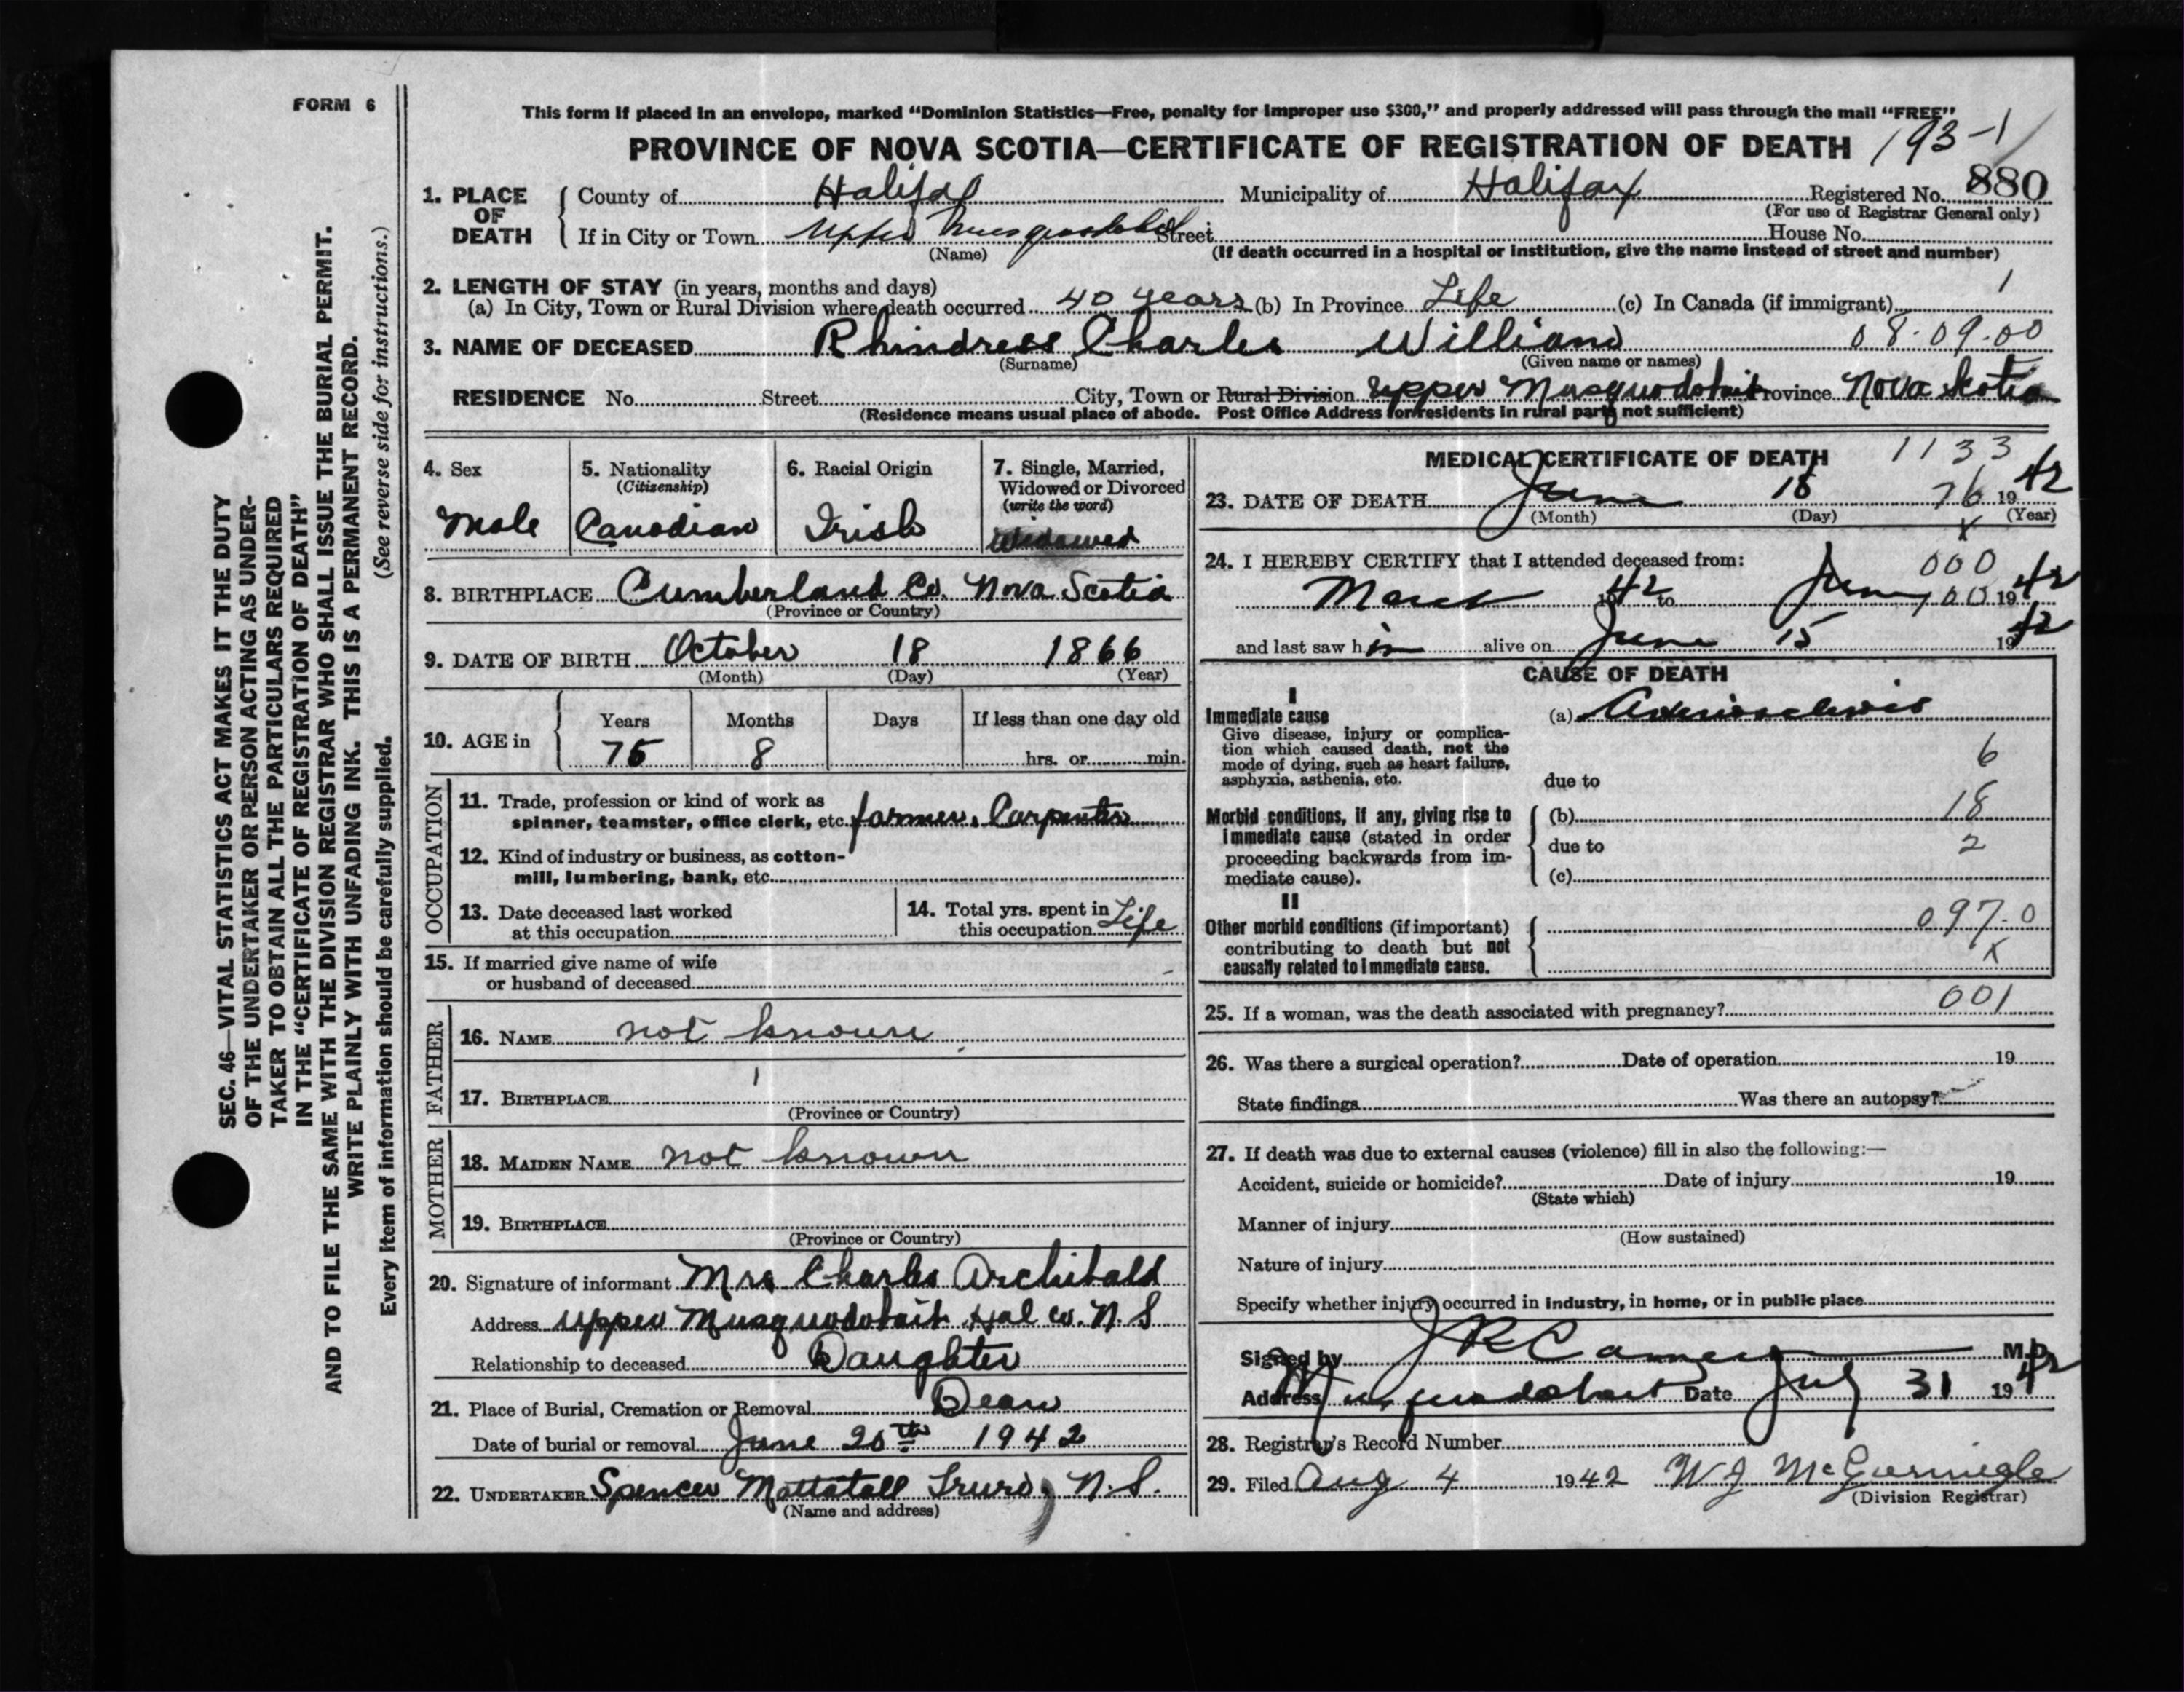 FORM 6
This form if placed in an envelope, marked “Dominion Statistics—Free, penalty for improper use $300,” and properly addressed will pass through the mail “FREE”
PROVINCE OF NOVA SCOTIA—CERTIFICATE OF REGISTRATION OF DEATH 193-1
1. PLACE OF DEATH
County of Halifax Municipality of Halifax Registered No. 880
(For use of Registrar General only)
If in City or Town Upper Musquodoboit Street House No.
(Name) (If death occurred in a hospital or institution, give the name instead of street and number)
2. LENGTH OF STAY (in years, months and days) 1
(a) In City, Town or Rural Division where death occurred 40 years (b) In Province Life (c) In Canada (if immigrant)
3. NAME OF DECEASED Rhindress Charles William 08.09.00
(Surname) (Given name or names)
RESIDENCE No. Street City, Town or Rural Division Upper Musquodoboit Province Nova Scotia
(Residence means usual place of abode. Post Office Address for residents in rural parts not sufficient)
4. Sex
Male
5. Nationality
(Citizenship)
Canadian
6. Racial Origin
Irish
7. Single, Married,
Widowed or Divorced
(write the word)
Widowed
8. BIRTHPLACE Cumberland Co. Nova Scotia
(Province or Country)
9. DATE OF BIRTH October 18 1866
(Month) (Day) (Year)
10. AGE in
Years Months Days If less than one day old
75 8 hrs. or min.
OCCUPATION
11. Trade, profession or kind of work as
spinner, teamster, office clerk, etc. farmer, Carpenter
12. Kind of industry or business, as cotton-
mill, lumbering, bank, etc.
13. Date deceased last worked
at this occupation
14. Total yrs. spent in
this occupation Life
15. If married give name of wife
or husband of deceased -
FATHER
16. NAME not known
17. BIRTHPLACE
(Province or Country)
MOTHER
18. MAIDEN NAME not known
19. BIRTHPLACE
(Province or Country)
20. Signature of informant Mrs Charles Archibald
Address Upper Musquodoboit Hal co. N.S
Relationship to deceased Daughter
21. Place of Burial, Cremation or Removal Dean
Date of burial or removal June 20th 1942
22. UNDERTAKER Spencer Mattatall Truro, N.S.
(Name and address)
MEDICAL CERTIFICATE OF DEATH 1133
23. DATE OF DEATH June 18 76 1942
(Month) (Day) (Year)
x
24. I HEREBY CERTIFY that I attended deceased from: 000
March 1942 to June 100 1942
and last saw him alive on June 15 1942
CAUSE OF DEATH
I
Immediate cause
Give disease, injury or complica-
tion which caused death, not the
mode of dying, such as heart failure,
asphyxia, asthenia, etc.
(a)
6
due to
Morbid conditions, if any, giving rise to
immediate cause (stated in order
proceeding backwards from im-
mediate cause).
(b) 18
due to 2
(c)
II
Other morbid conditions (if important)
contributing to death but not
causally related to immediate cause.
097.0
x
25. If a woman, was the death associated with pregnancy? 001
26. Was there a surgical operation? Date of operation 19
State findings Was there an autopsy?
27. If death was due to external causes (violence) fill in also the following:—
Accident, suicide or homicide? Date of injury 19
(State which)
Manner of injury
(How sustained)
Nature of injury
Specify whether injury occurred in industry, in home, or in public place
Signed by M.D.
Address Musquodoboit Date July 31 1942
28. Registrar's Record Number
29. Filed Aug 4 1942 W J McGunnigle
(Division Registrar)
SEC. 46—VITAL STATISTICS ACT MAKES IT THE DUTY
OF THE UNDERTAKER OR PERSON ACTING AS UNDER-
TAKER TO OBTAIN ALL THE PARTICULARS REQUIRED
IN THE “CERTIFICATE OF REGISTRATION OF DEATH”
AND TO FILE THE SAME WITH THE DIVISION REGISTRAR WHO SHALL ISSUE THE BURIAL PERMIT.
WRITE PLAINLY WITH UNFADING INK. THIS IS A PERMANENT RECORD.
Every item of information should be carefully supplied. (See reverse side for instructions.)